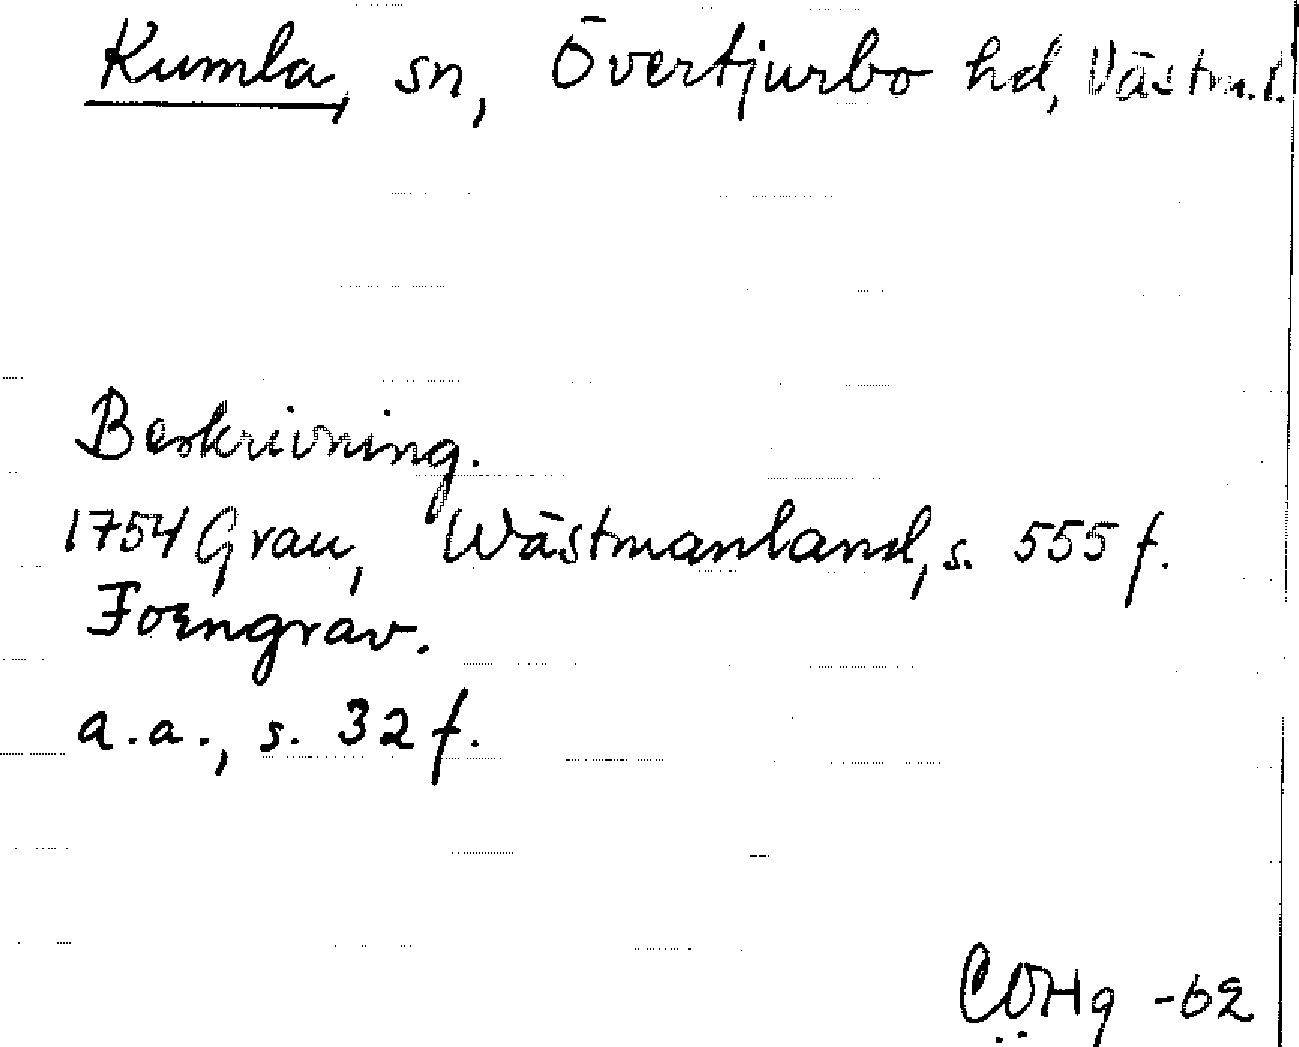 Kumla, sn, Övertjurbo hd, Västm.l.
Beskrivning.
1754 Grau, Wästmanland, s. 555 f.
Forngrav.
a.a., s. 32 f.
CÖHg -62